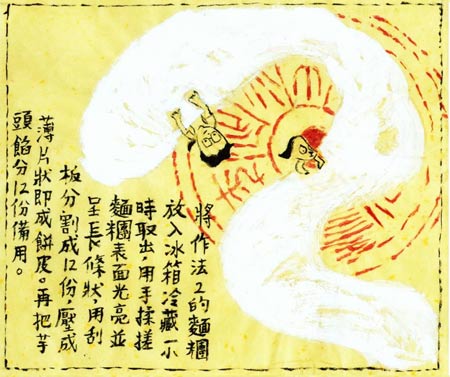 將作法2的麵糰
放入冰箱冷藏一小
時取出，用手揉搓
麵糰表面光亮並
呈長條狀，用刮
板分割成12份，壓成
薄片狀即成餅皮。再把芋
頭餡分12份備用。